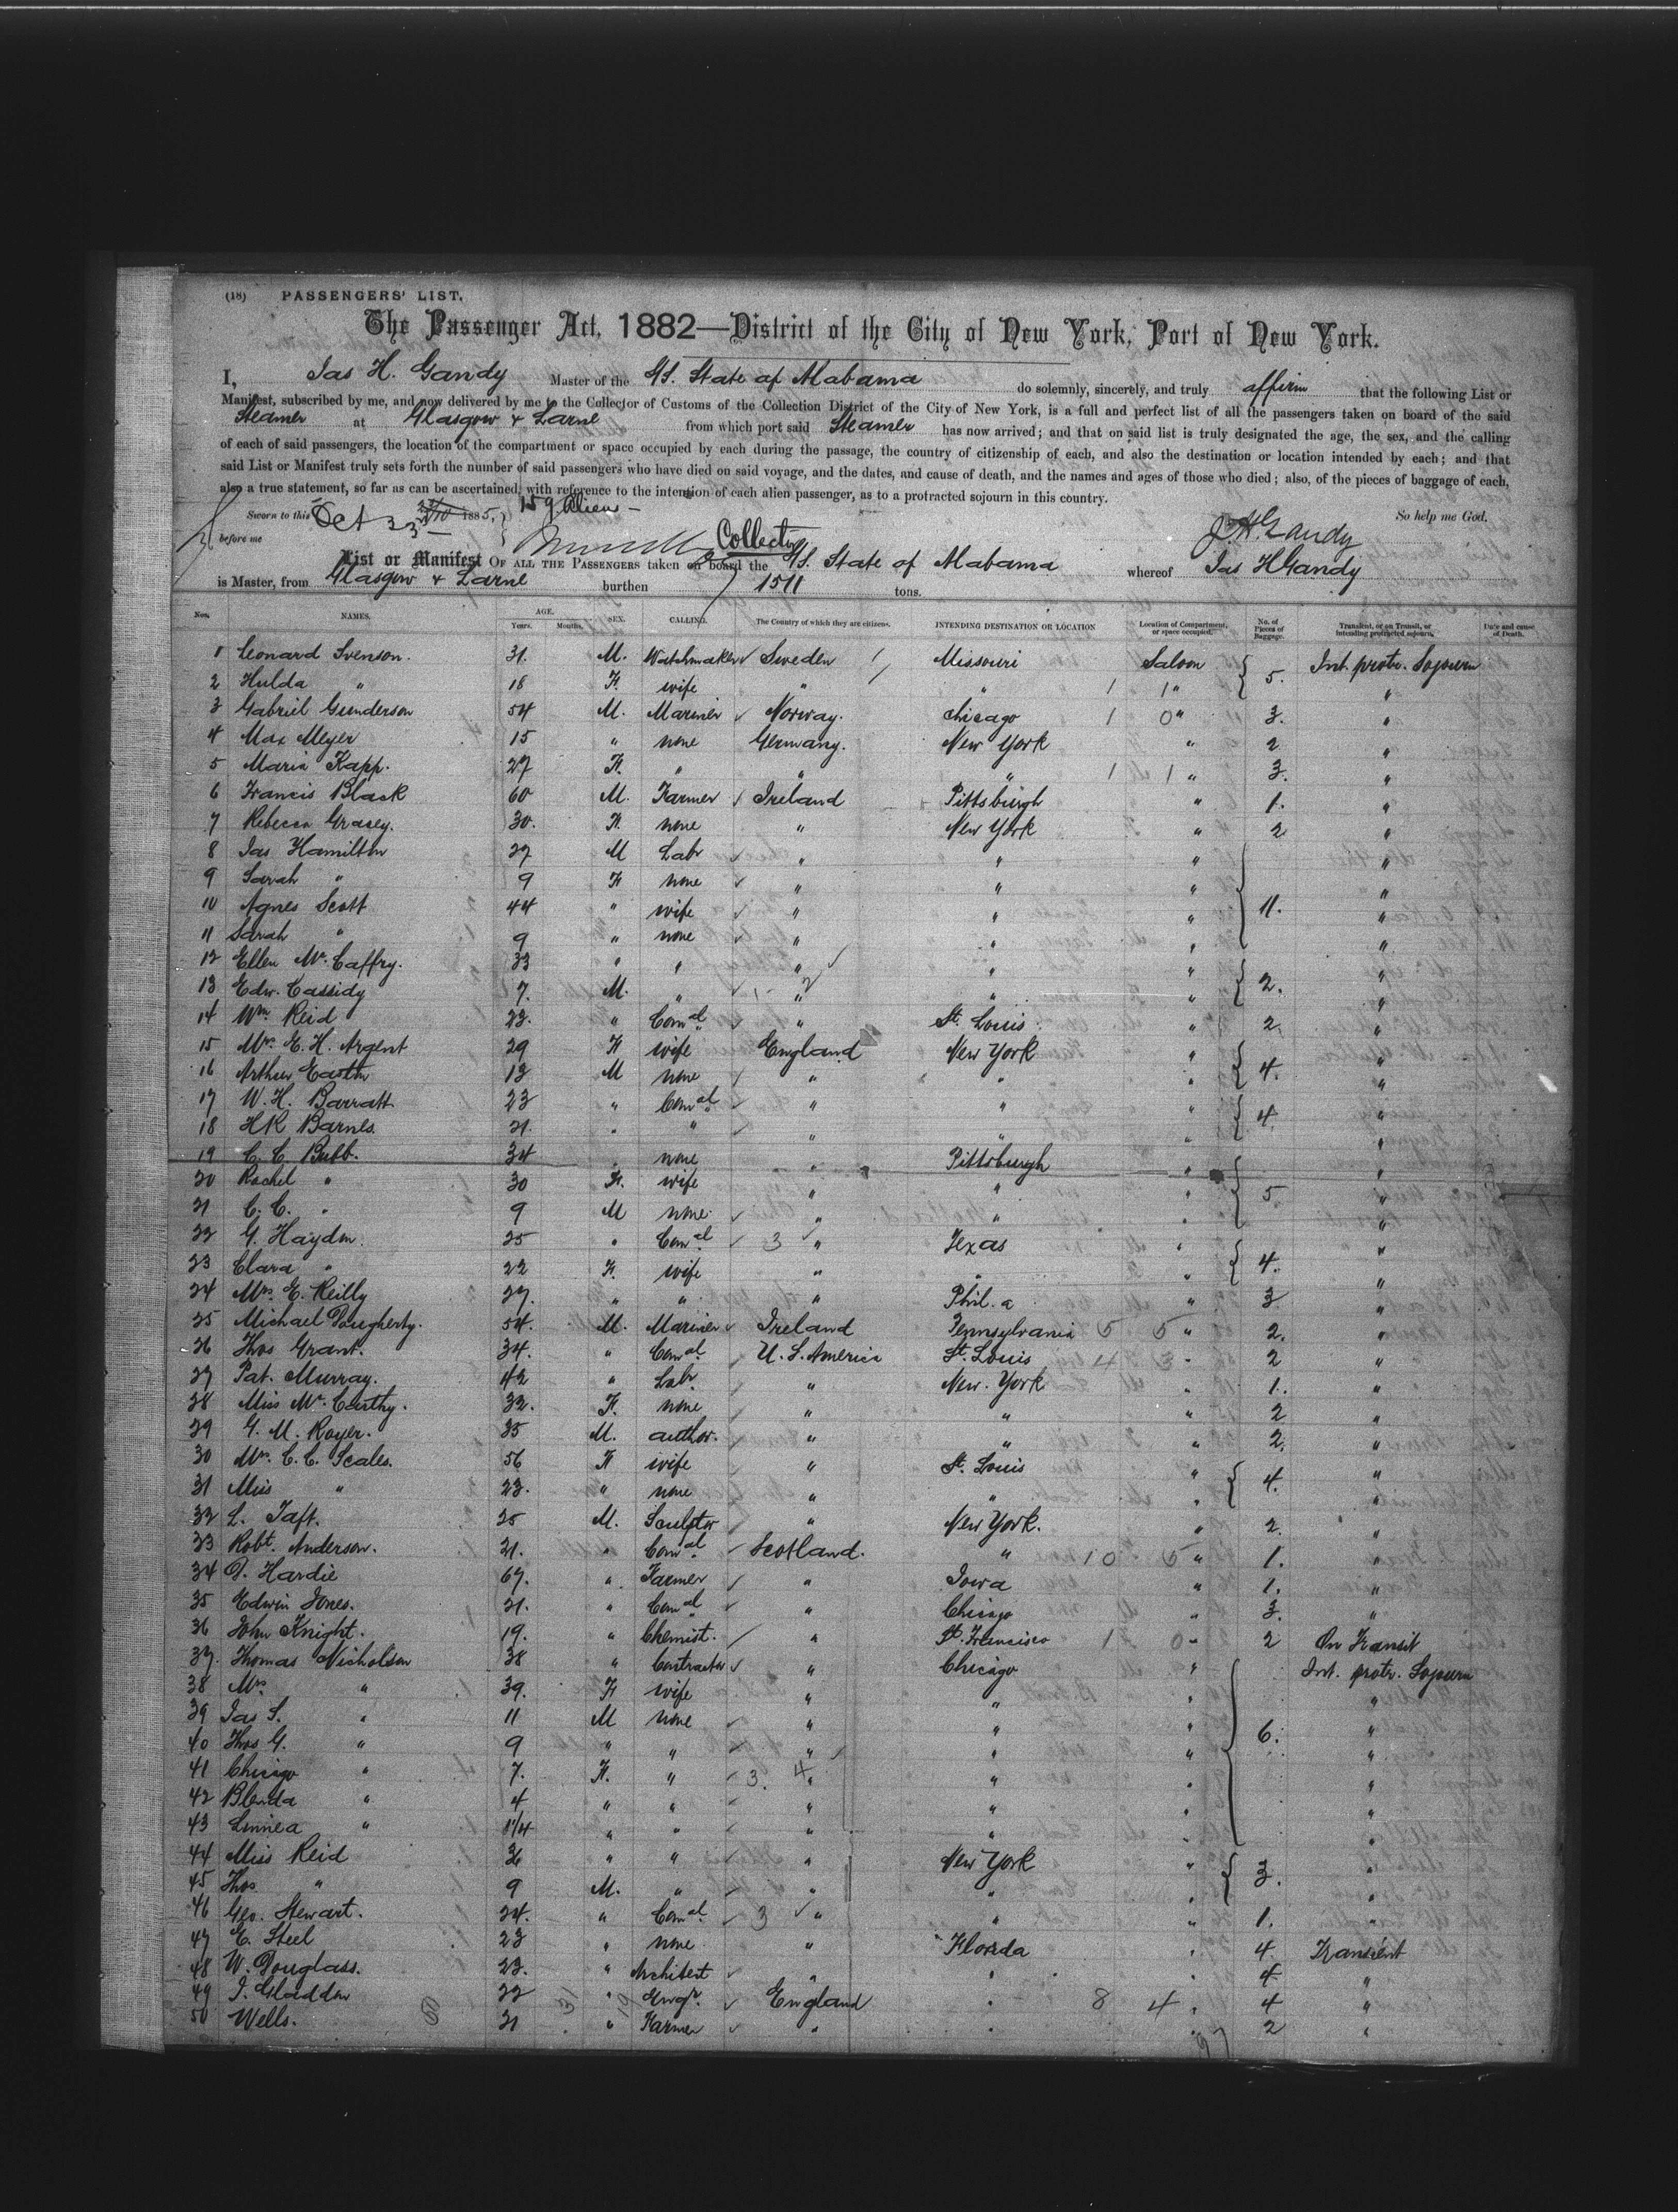 (18) PASSENGERS' LIST.
The Passenger Act, 1882—District of the City of New York, Port of New York.
I, Jas H. Gandy Master of the SS. State of Alabama do solemnly, sincerely, and truly affirm that the following List or
Manifest, subscribed by me, and now delivered by me to the Collector of Customs of the Collection District of the City of New York, is a full and perfect list of all the passengers taken on board of the said
Steamer at Glasgow & Larne from which port said Steamer has now arrived; and that on said list is truly designated the age, the sex, and the calling
of each of said passengers, the location of the compartment or space occupied by each during the passage, the country of citizenship of each, and also the destination or location intended by each; and that
said List or Manifest truly sets forth the number of said passengers who have died on said voyage, and the dates, and cause of death, and the names and ages of those who died; also, of the pieces of baggage of each,
also a true statement, so far as can be ascertained, with reference to the intention of each alien passenger, as to a protracted sojourn in this country.
Sworn to this Oct 23 1885, 159 Aliens — So help me God.
before me Collector J H Gandy
List or Manifest OF ALL THE PASSENGERS taken on board the SS. State of Alabama whereof Jas H Gandy
is Master, from Glasgow & Larne burthen 1511 tons.
Nos. NAMES. AGE. Years. Months. SEX. CALLING. The Country of which they are citizens. INTENDING DESTINATION OR LOCATION Location of Compartment, or space occupied. No. of Pieces of Baggage. Transient, or on Transit, or intending protracted sojourn. Date and cause of Death.
1 Leonard Svenson. 31. M. Watchmaker Sweden Missouri Saloon 5. Int. protr. Sojourn
2 Hulda " 18 F. wife " " " "
3 Gabriel Gunderson 54 M. Mariner Norway. Chicago " 3. "
4 Max Meyer 15 " none Germany. New York " 2 "
5 Maria Kapp. 27 F. " " " " 3. "
6 Francis Black 60 M. Farmer Ireland Pittsburgh " 1. "
7 Rebecca Gracey. 30. F. none " New York " 2 "
8 Jas Hamilton 27 M Labr " " " "
9 Sarah " 9 F none " " " "
10 Agnes Scott 44 " wife " " " 11. "
11 Sarah " 9 " none " " " "
12 Ellen Mc Caffry. 33 " " " " " "
13 Edw. Cassidy 7. M. " " " " 2. "
14 Wm Reid 23. " Comal " St. Louis " 2 "
15 Mrs E. H. Argent 29 F wife England New York " "
16 Arthur Easton 12 M none " " " 4. "
17 W. H. Barratt 23 " Comal " " " "
18 HR Barnes. 21. " " " " " 4. "
19 C. C. Bubb. 34 " none " Pittsburgh " "
20 Rachel " 30 F. wife " " " 5. "
21 C. C. " 9 M none " " " "
22 G. Haydon. 25 " Comal " Texas " "
23 Clara " 22 F. wife " " " 4. "
24 Mrs. E. Reilly 27. " " " Phil.a " 3 "
25 Michael Dougherty. 54. M. Mariner Ireland Pennsylvania " 2. "
26 Thos Grant. 34. " Comal U. S. America St. Louis " 2 "
27 Pat. Murray. 42 " Labr " New York " 1. "
28 Miss Mc Carthy. 32. F. none " " " 2 "
29 G. M. Royer. 35 M. author. " " " 2. "
30 Mrs. C. C. Scales. 56 F wife " St. Louis " "
31 Miss " 23. " none " " " 4. "
32 L. Taft. 25 M. Sculptor " New York. " 2. "
33 Robt. Anderson. 21. " Comal Scotland. " " 1. "
34 D. Hardie 67. " Farmer " Iowa " 1. "
35 Edwin Jones. 21. " Comal " Chicago " 3. "
36 John Knight. 19. " Chemist. " St. Francisco " 2 On Transit
37. Thomas Nicholson 38 " Contractor " Chicago " Int. protr. Sojourn
38 Mrs " 39. F wife " " " "
39 Jas S. " 11 M none " " " "
40 Thos G. " 9 " " " " " 6. "
41 Chicago " 7. F. " " " " "
42 Blenda " 4 " " " " " "
43 Linnea " 1 1/4 " " " " " "
44 Miss Reid " " " New York " "
45 Thos " 9 M. " " " " 3. "
46 Geo. Stewart. 24. " Comal " " " 1. "
47 E. Steel 23 " none " Florida " 4. Transient
48 W. Douglass. 23. " Architect " " " 4 "
49 J. Gladdon 22 " Engr. England " " 4 "
50 Wells. 21 " Farmer " " " 2 "